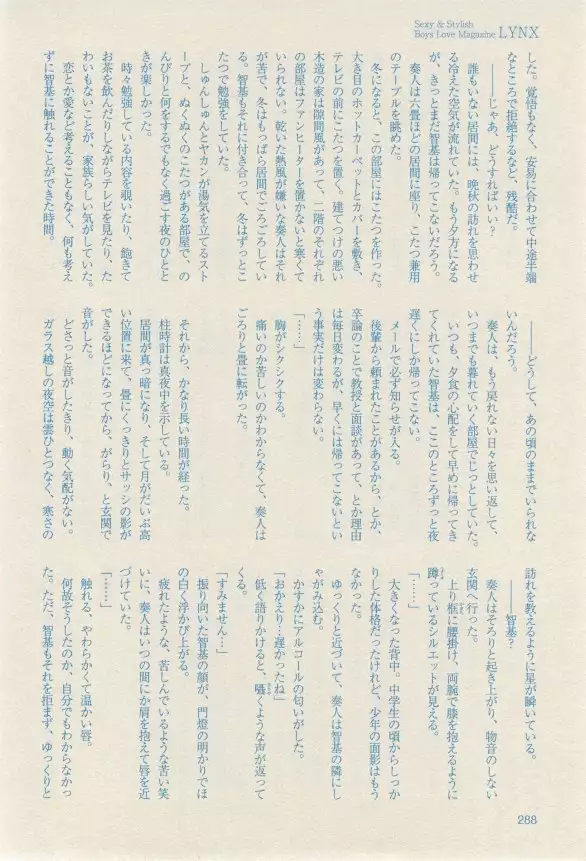 Sexy & Stylish
Boys Love Magazine LYNX
した。覚悟もなく、安易に合わせて中途半端
なところで拒絶するなど、残酷だ。
――じゃあ、どうすればいい？
誰もいない居間には、晩秋の訪れを思わせ
る冷えた空気が流れていた。もう夕方になる
が、きっとまだ智基は帰ってこないだろう。
奏人は六畳ほどの居間に座り、こたつ兼用
のテーブルを眺めた。
冬になると、この部屋にはこたつを作った。
大き目のホットカーペットとカバーを敷き、
テレビの前にこたつを置く。建てつけの悪い
木造の家は隙間風があって、二階のそれぞれ
の部屋はファンヒーターを置かないと寒くて
いられない。乾いた熱風が嫌いな奏人はそれ
が苦で、冬はもっぱら居間でごろごろしてい
る。智基もそれに付き合って、冬はずっとこ
たつで勉強をしていた。
しゅんしゅんとヤカンが湯気を立てるスト
ーブと、ぬくぬくのこたつがある部屋で、の
んびりと何をするでもなく過ごす夜のひとと
きが楽しかった。
時々勉強している内容を覗いたり、飽きて
お茶を飲んだりしながらテレビを見たり、た
わいもないことが、家族らしい気がしていた。
恋とか愛など考えることもなく、何も考え
ずに智基に触れることができた時間。
――どうして、あの頃のままでいられな
いんだろう。
奏人は、もう戻れない日々を思い返して、
いつまでも暮れていく部屋でじっとしていた。
いつも、夕食の心配をして早めに帰ってき
てくれていた智基は、ここのところずっと夜
遅くにしか帰ってこない。
メールで必ず知らせが入る。
後輩から頼まれたことがあるから、とか、
卒論のことで教授と面談があって、とか理由
は毎日変わるが、早くには帰ってこないとい
う事実だけは変わらない。
「……」
胸がシクシクする。
痛いのか苦しいのかわからなくて、奏人は
ごろりと畳に転がった。
それから、かなり長い時間が経った。
柱時計は真夜中を示している。
居間が真っ暗になり、そして月がだいぶ高
い位置に来て、畳にくっきりとサッシの影が
できるほどになってから、がらり、と玄関で
音がした。
どさっと音がしたきり、動く気配がない。
ガラス越しの夜空は雲ひとつなく、寒さの
訪れを教えるように星が瞬いている。
――智基？
奏人はそろりと起き上がり、物音のしない
玄関へ行った。
上り框に腰掛け、両腕で膝を抱えるように
蹲っているシルエットが見える。
「……」
大きくなった背中。中学生の頃からしっか
りした体格だったけれど、少年の面影はもう
なかった。
ゆっくりと近づいて、奏人は智基の隣にし
ゃがみ込む。
かすかにアルコールの匂いがした。
「おかえり…遅かったね」
低く語りかけると、囁くような声が返って
くる。
「すみません…」
振り向いた智基の顔が、門燈の明かりでほ
の白く浮かび上がる。
疲れたような、苦しんでいるような苦い笑
いに、奏人はいつの間にか肩を抱えて唇を近
づけていた。
「……」
触れる、やわらかくて温かい唇。
何故そうしたのか、自分でもわからなかっ
た。ただ、智基もそれを拒まず、ゆっくりと
288